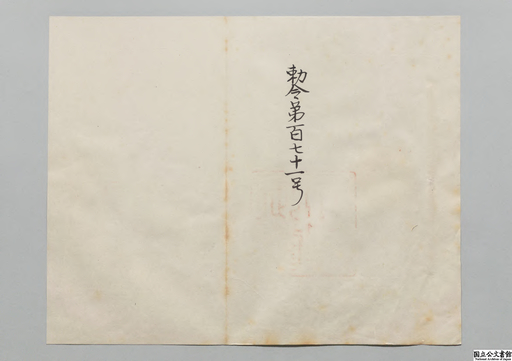 勅令第百七十一号
国立公文書館
National Archives of Japan